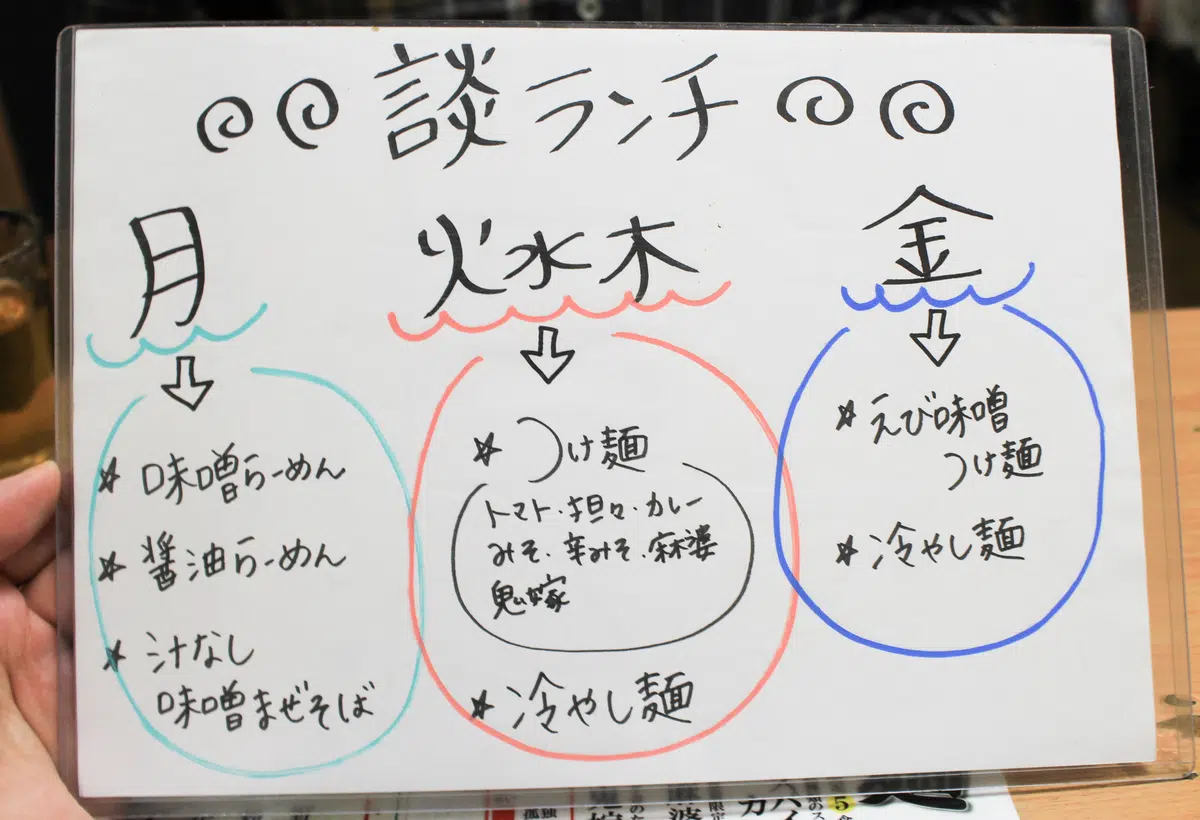 談ランチ
月
☆味噌らーめん
☆醤油らーめん
☆汁なし
味噌まぜそば
火水木
☆つけ麺
トマト・担々・カレー
みそ・辛みそ・麻婆
鬼嫁
☆冷やし麺
金
☆えび味噌
つけ麺
☆冷やし麺